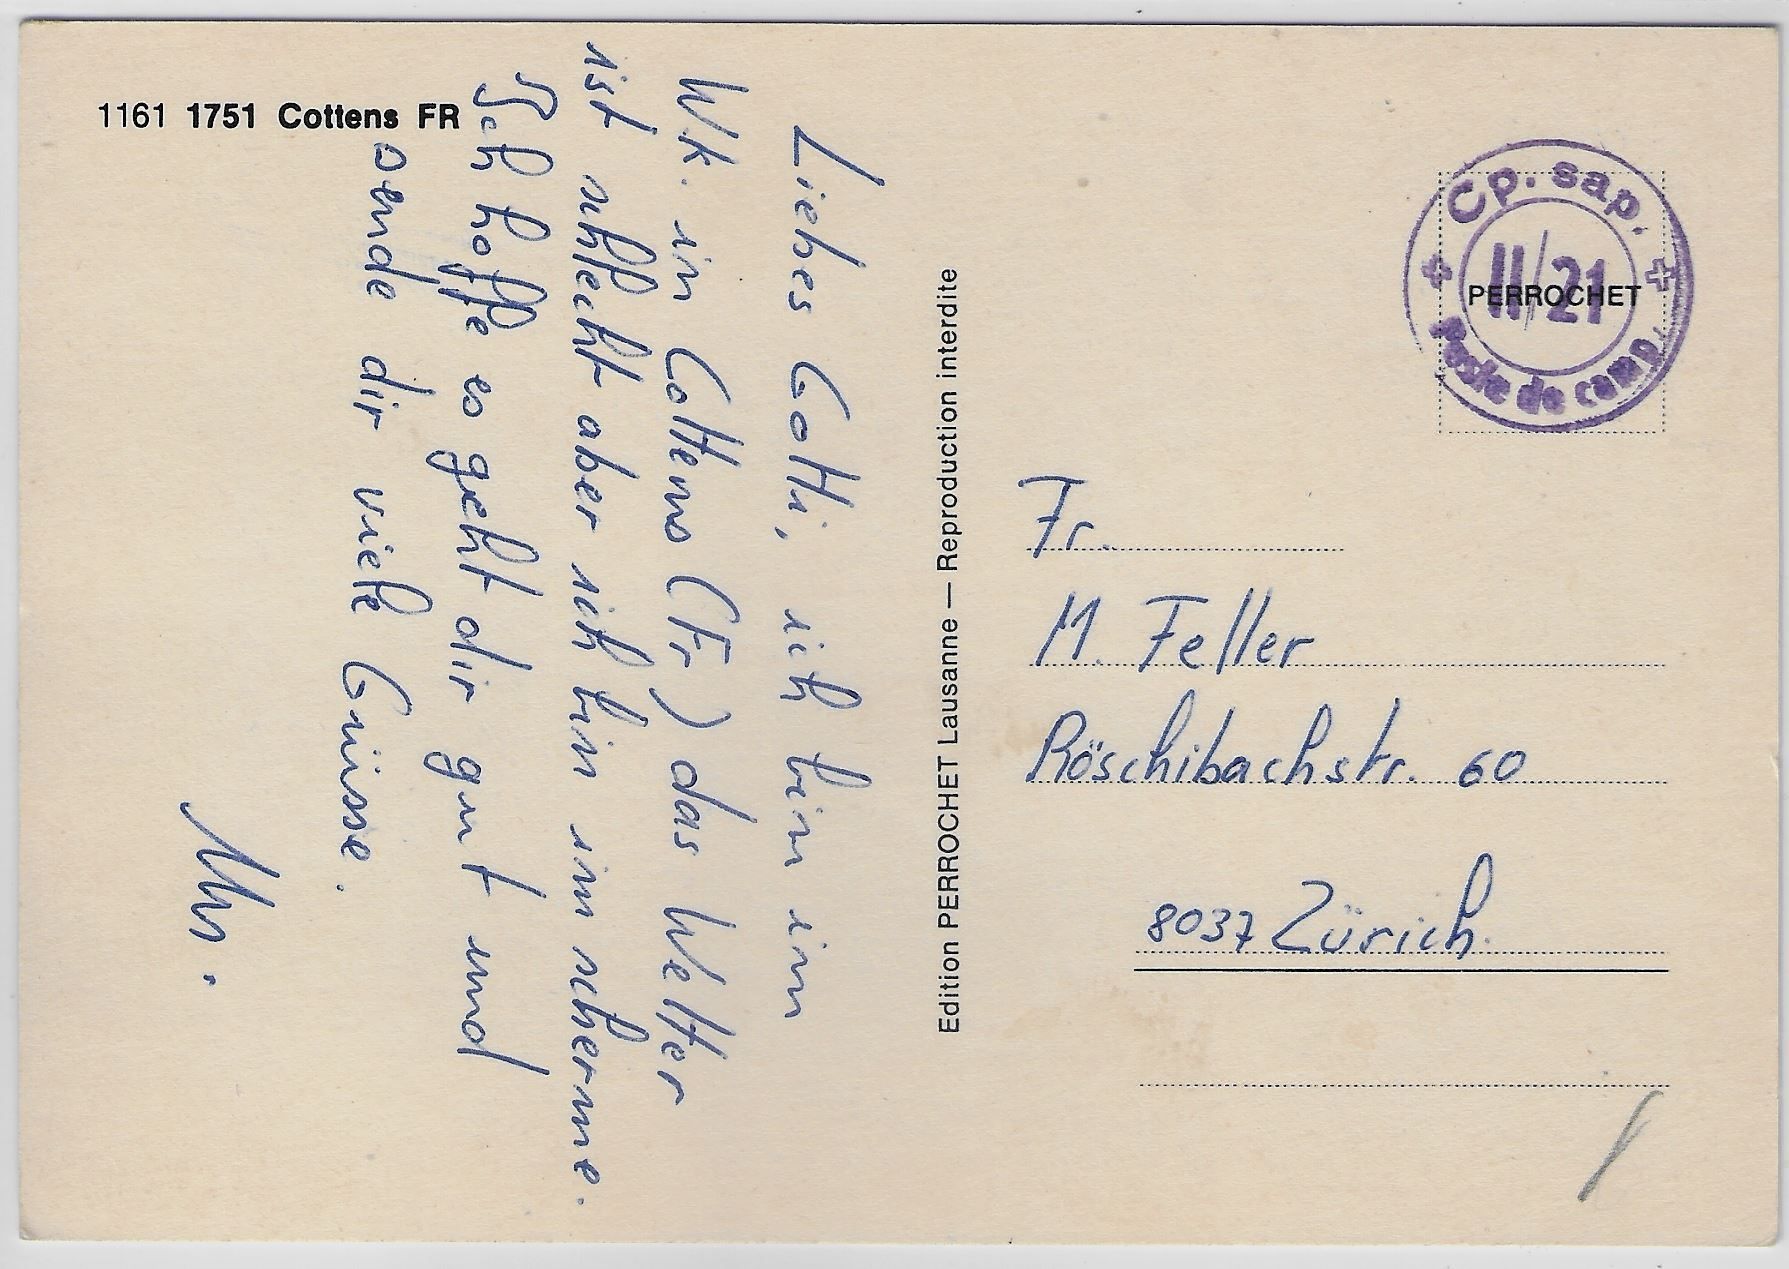 1161 1751 Cottens FR
Liebes Gotti, ich bin im
Wk. in Cottens (Fr) das Wetter
ist schlecht aber ich bin im scherme.
Ich hoffe es geht dir gut und
sende dir viele Grüsse.
Edition PERROCHET Lausanne — Reproduction interdite
Cp. sap.
II/21
Poste de camp.
PERROCHET
Fr.
M. Feller
Röschibachstr. 60
8037 Zürich.